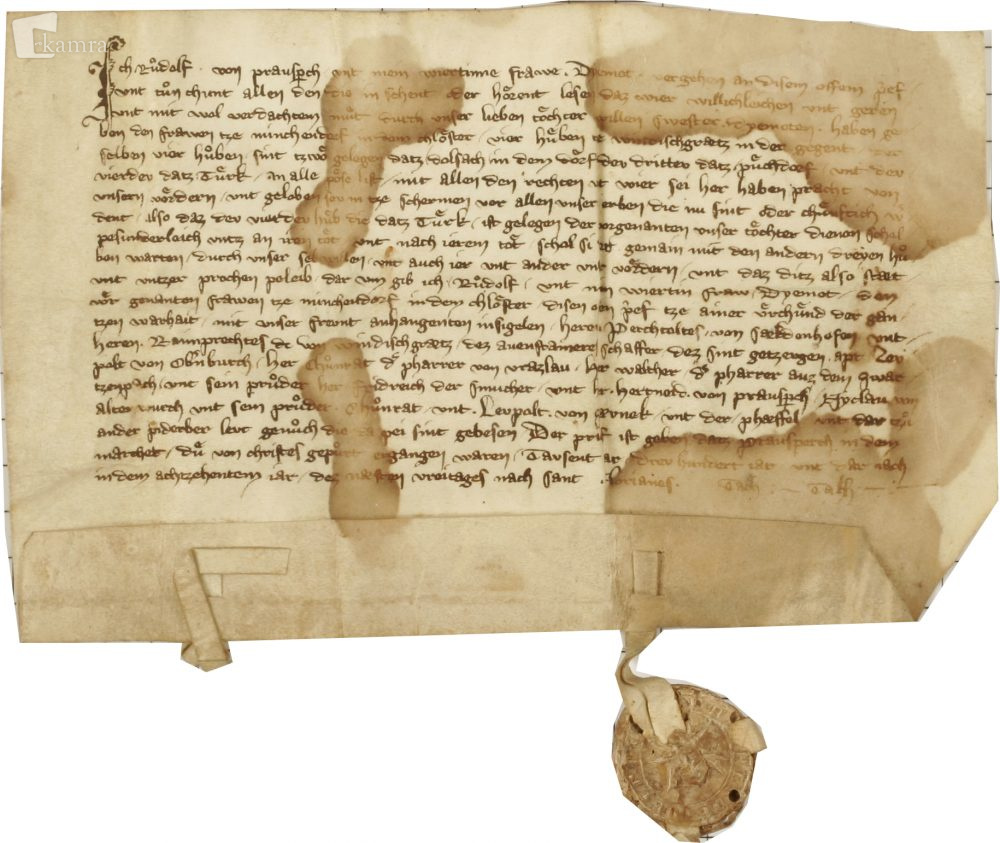 kamra
Ich Růdolf · von prausperch vnt mein wiertinne frawe · Dyemot · vergehen an disem offem prief
vnt tůn chunt allen den die in sehent oder hörent lesen daz wier willichleichen vnt geren
vnt mit wol verdachtem můt durch vnser lieben töchter willen swester · Dyemoten · haben ge
ben den frawen tze minchendorf in dem chlöster · vier hůben tze windischgratz in der gegent · der
selben vier hůben sint tzwo gelegen datz dolsach in dem dorf der dritter datz · půchdorf · vnt der
vierder datz Türk · an alle pöse list · mit allen den rechten vt wier sei her haben pracht von
vnsern vordern · vnt geloben sev in tze schermen vor allen vnser erben die nu sint oder chünftich
dent · also daz der vierder hůb die datz Türk · ist gelegen der vorgenanten vnser töchter dienen schol
pesunderleich vntz an iren tot vnt nach ierem tot schol si gemain mit den andern dreyen hů
ben warten · durch vnser sel willen · vnt auch ier vnt ander vnser vordern · vnt daz ditz also staet
vnt vntzer prochen poleib · dar vm gib ich · Růdolf · vnt mein wiertin fraw · Dyemot · den
vor genanten frawen tze minchendorf in dem chlöster · disen offen prief tze ainer vrchünd der gan
tzen warhait · mit vnser frevnt anhangenten insigelen · heren · Perchtoltes · von Saeldenhofen · vnt ·
heren · Rainprechtes von windischgratz · dez schaffer · dez sint getzevgen · apt Lev
polt von Obnburch · her Chůnrat der pharrer von vrazlau · her walther der pharrer auz dem
vnt sein průder her fridreich der vnt her · hertneid · von prausperch · Nyclau von
alten vnt sein průder · Chůnrat · vnt · Levpolt · von · vnt · der · phaeffel · vnt dar tzů
ander piderber levt genůch die da pei sint gebesen Der prif ist geben datz Prausperch in dem
marchet · dů von christes gepürt ergangen waren · Tavsent iar drev hundert iar vnt dar nach
in dem achzehentem iar · dez naesten vreitages nach sant